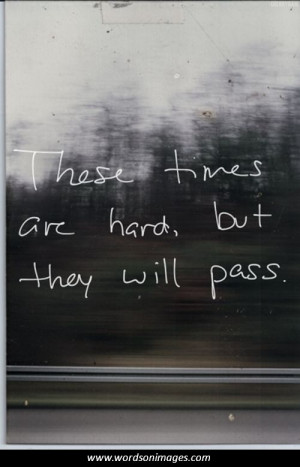 These times
are hard, but
they will pass.
www.wordsonimages.com